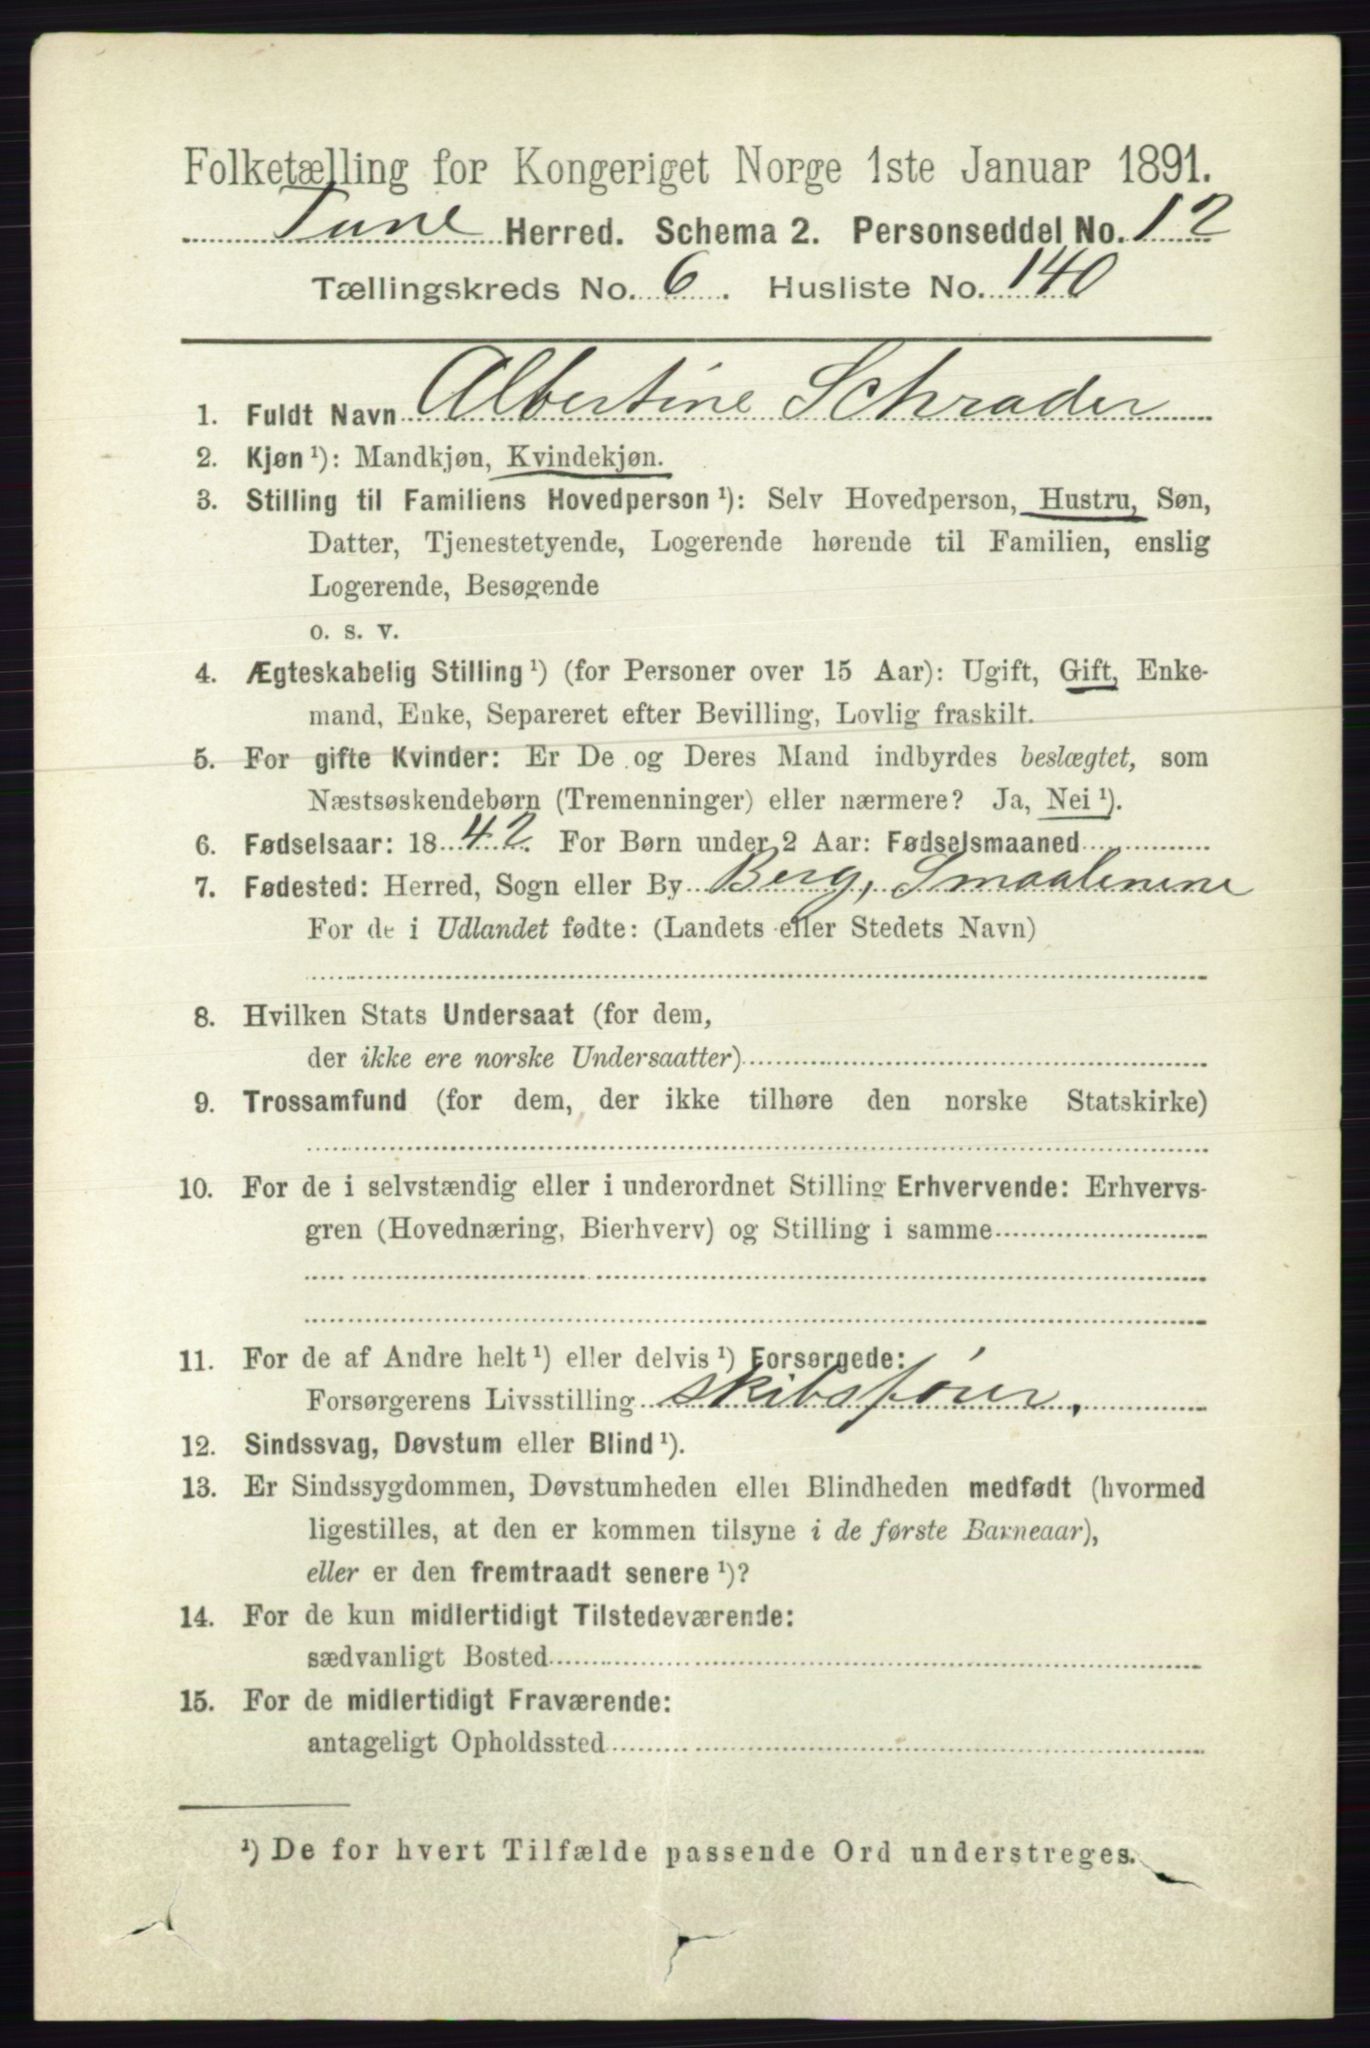 Folketælling for Kongeriget Norge 1ste Januar 1891.
Tune Herred. Schema 2. Personseddel No. 12
Tællingskreds No. 6. Husliste No. 140
1. Fuldt Navn Albertine Schrader
2. Kjøn ¹): Mandkjøn, Kvindekjøn.
3. Stilling til Familiens Hovedperson ¹): Selv Hovedperson, Hustru, Søn,
Datter, Tjenestetyende, Logerende hørende til Familien, enslig
Logerende, Besøgende
o. s. v.
4. Ægteskabelig Stilling ¹) (for Personer over 15 Aar): Ugift, Gift, Enke-
mand, Enke, Separeret efter Bevilling, Lovlig fraskilt.
5. For gifte Kvinder: Er De og Deres Mand indbyrdes beslægtet, som
Næstsøskendebørn (Tremenninger) eller nærmere? Ja, Nei ¹).
6. Fødselsaar: 18 42. For Børn under 2 Aar: Fødselsmaaned
7. Fødested: Herred, Sogn eller By Berg, Smaalenene
For de i Udlandet fødte: (Landets eller Stedets Navn)
8. Hvilken Stats Undersaat (for dem,
der ikke ere norske Undersaatter)
9. Trossamfund (for dem, der ikke tilhøre den norske Statskirke)
10. For de i selvstændig eller i underordnet Stilling Erhvervende: Erhvervs-
gren (Hovednæring, Bierhverv) og Stilling i samme
11. For de af Andre helt ¹) eller delvis ¹) Forsørgede:
Forsørgerens Livsstilling skibsfører.
12. Sindssvag, Døvstum eller Blind ¹).
13. Er Sindssygdommen, Døvstumheden eller Blindheden medfødt (hvormed
ligestilles, at den er kommen tilsyne i de første Barneaar),
eller er den fremtraadt senere ¹)?
14. For de kun midlertidigt Tilstedeværende:
sædvanligt Bosted
15. For de midlertidigt Fraværende:
antageligt Opholdssted
¹) De for hvert Tilfælde passende Ord understreges.